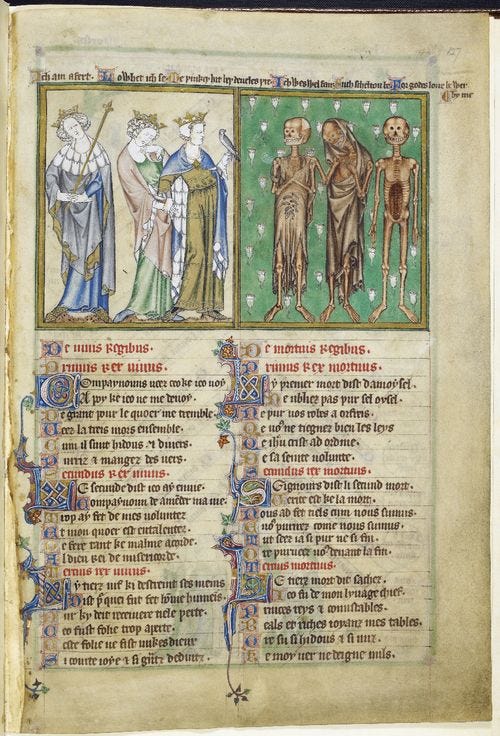 Ich am afert. Lo whet ich se. Me þinkeþ hit bey deueles þre. Ich wes wel fair. Such scheltou be. For godes loue bewer
by me
127
De uiuis regibus.
Primus rex uiuus.
Compaynouns ueez ceo ke ieo uoy
A poy ke ieo ne me deuoy.
De grant pour le quoer me tremble
Veez la treis mors ensemble.
Cum il sunt hidus & diuers
Purriz & mangez des uers.
Secundus rex uiuus.
Le secunde dist ieo ay enuie
Compaynoun de amender ma uie.
Trop ay fet de mes uoluntez
De mon quoer est entalentez.
De fere tant ke malme acorde.
Al dieu Rei de misericorde.
Tercius rex uiuus
Ly tierz uif ki destreint ses meins
Dist
fet home humeins.
Pur ky deit receiuere tiele perte.
Ceo fust folie trop aperte.
Ceste folie ne fist unkes dieu
Si courte ioye & si
De mortuis regibus.
Primus rex mortuus.
Ly premer mort dist damoysel.
Ne ubliez pas pur sel oysel.
Ne pur uos robes a orfreis.
Qe uous ne tiegnez bien les leys
Qe ihu crist ad ordine.
De sa seinte uolunte.
Secundus rex mortuus.
Seignours dist li secund mort.
Verite est ke la mort.
Nous ad fet tiels cum nous sumus.
Et uous purrirez come nous sumus.
Tut seez ia si pur ne si fin.
Tercius mortuus.
Le tierz mort dit sachez.
Ieo fu de mon lynage chief.
Princes reys & conustables.
Beals et riches ioyanz mes tables.
Ore su si hidous & si nuz.
Ke moy uer ne deigne nuls.